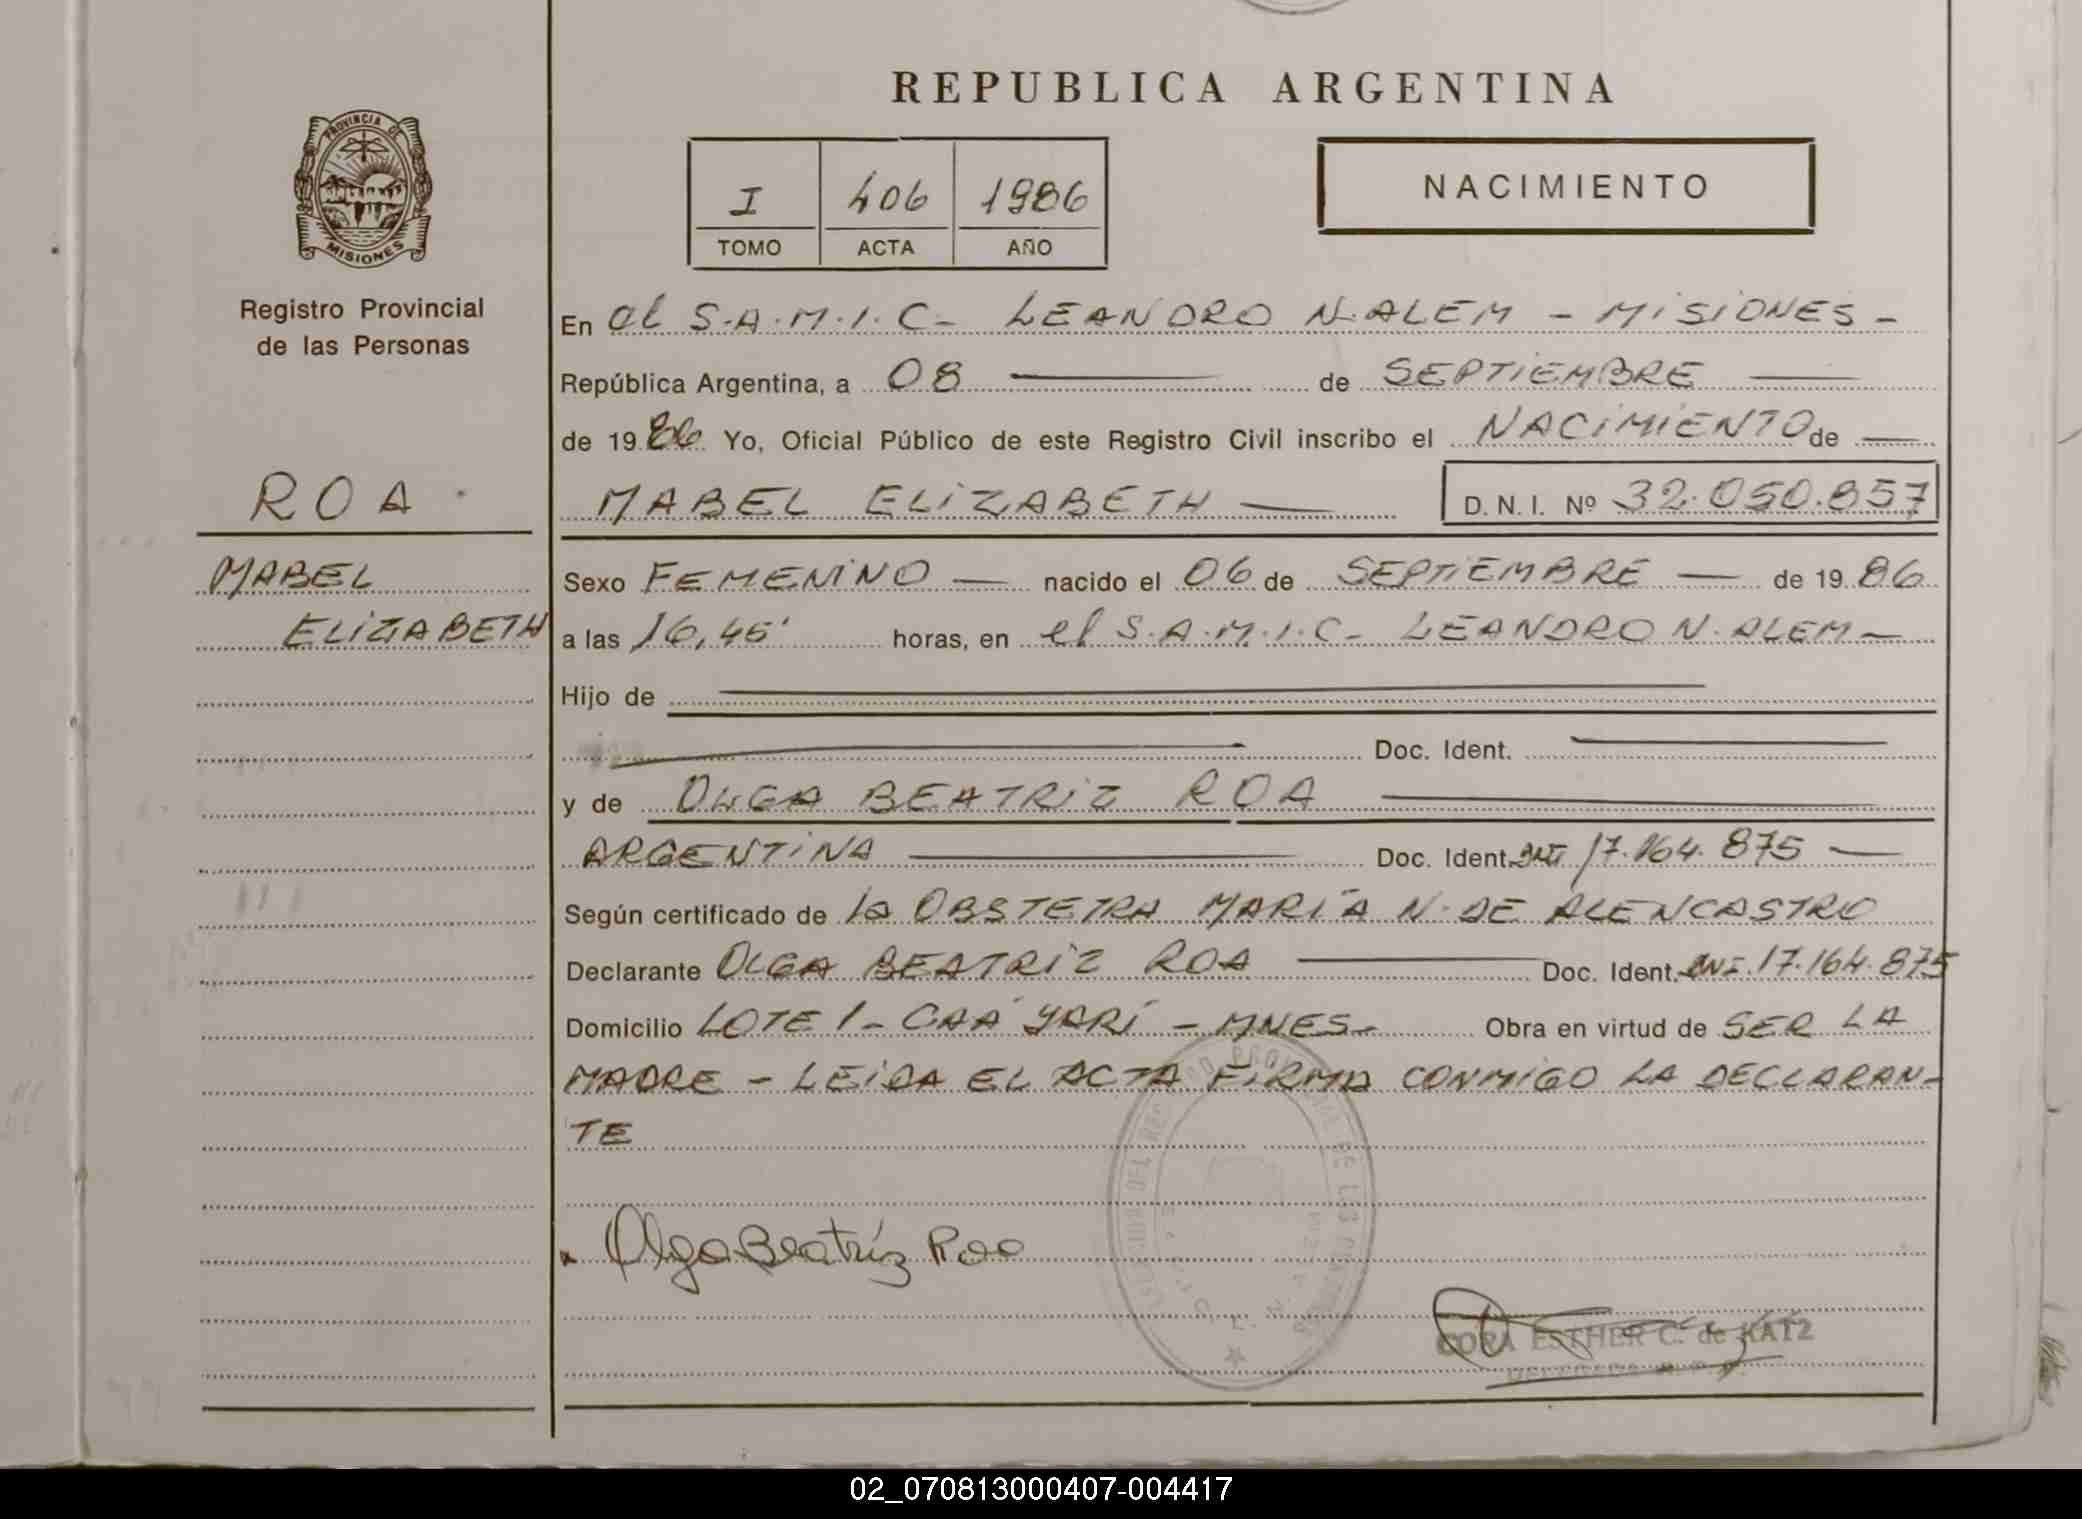 REPUBLICA ARGENTINA
PROVINCIA DE
MISIONES
Registro Provincial
de las Personas
I 406 1986
TOMO ACTA AÑO
NACIMIENTO
En el S.A.M.I.C- LEANDRO N. ALEM - MISIONES -
República Argentina, a 08 de SEPTIEMBRE
de 1986 Yo, Oficial Público de este Registro Civil inscribo el NACIMIENTO de
MABEL ELIZABETH D. N. I. Nº 32.050.857
ROA
MABEL
ELIZABETH
Sexo FEMENINO nacido el 06 de SEPTIEMBRE de 1986
a las 16,45' horas, en el S.A.M.I.C- LEANDRO N. ALEM
Hijo de
Doc. Ident.
y de OLGA BEATRIZ ROA
ARGENTINA Doc. Ident. DNI 17.164.875
Según certificado de la OBSTETRA MARÍA N. DE ALENCASTRO
Declarante OLGA BEATRIZ ROA Doc. Ident. DNI 17.164.875
Domicilio LOTE 1 - CAA YARÍ - MNES - Obra en virtud de SER LA
MADRE - LEIDA EL ACTA FIRMA CONMIGO LA DECLARAN-
TE
Olga Beatríz Roa
CORA ESTHER C. de KATZ
02_070813000407-004417